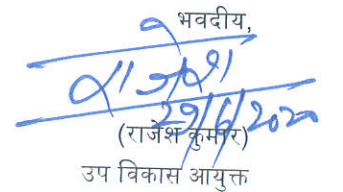 भवदीय,
राजेश
29/6/2020
(राजेश कुमार)
उप विकास आयुक्त